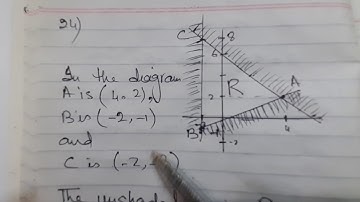 24)
In the diagram
A is (4, 2),
B is (-2, -1)
and
C is (-2,
The
C
8
6
2
R
A
B
4
-2